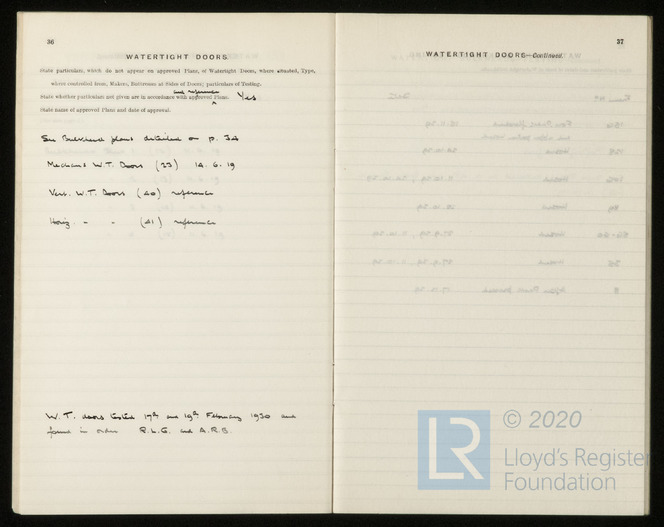 36
WATERTIGHT DOORS.
State particulars, which do not appear on approved Plans, of Watertight Doors, where situated, Type,
where controlled from, Makers, Buttresses at Sides of Doors; particulars of Testing.
and reference
State whether particulars not given are in accordance with approved Plans. Yes
State name of approved Plans and date of approval.
See Bulkhead plans detailed on p. 34
Mechans W.T. Doors (23) 14.6.19
Vert. W.T. Doors (40) reference
Horiz. - - (41) reference
W.T. doors tested 17th and 19th February 1930 and
found in order R.L.G. and A.R.B.
37
WATERTIGHT DOORS—Continued.
© 2020
LR
Lloyd's Register
Foundation